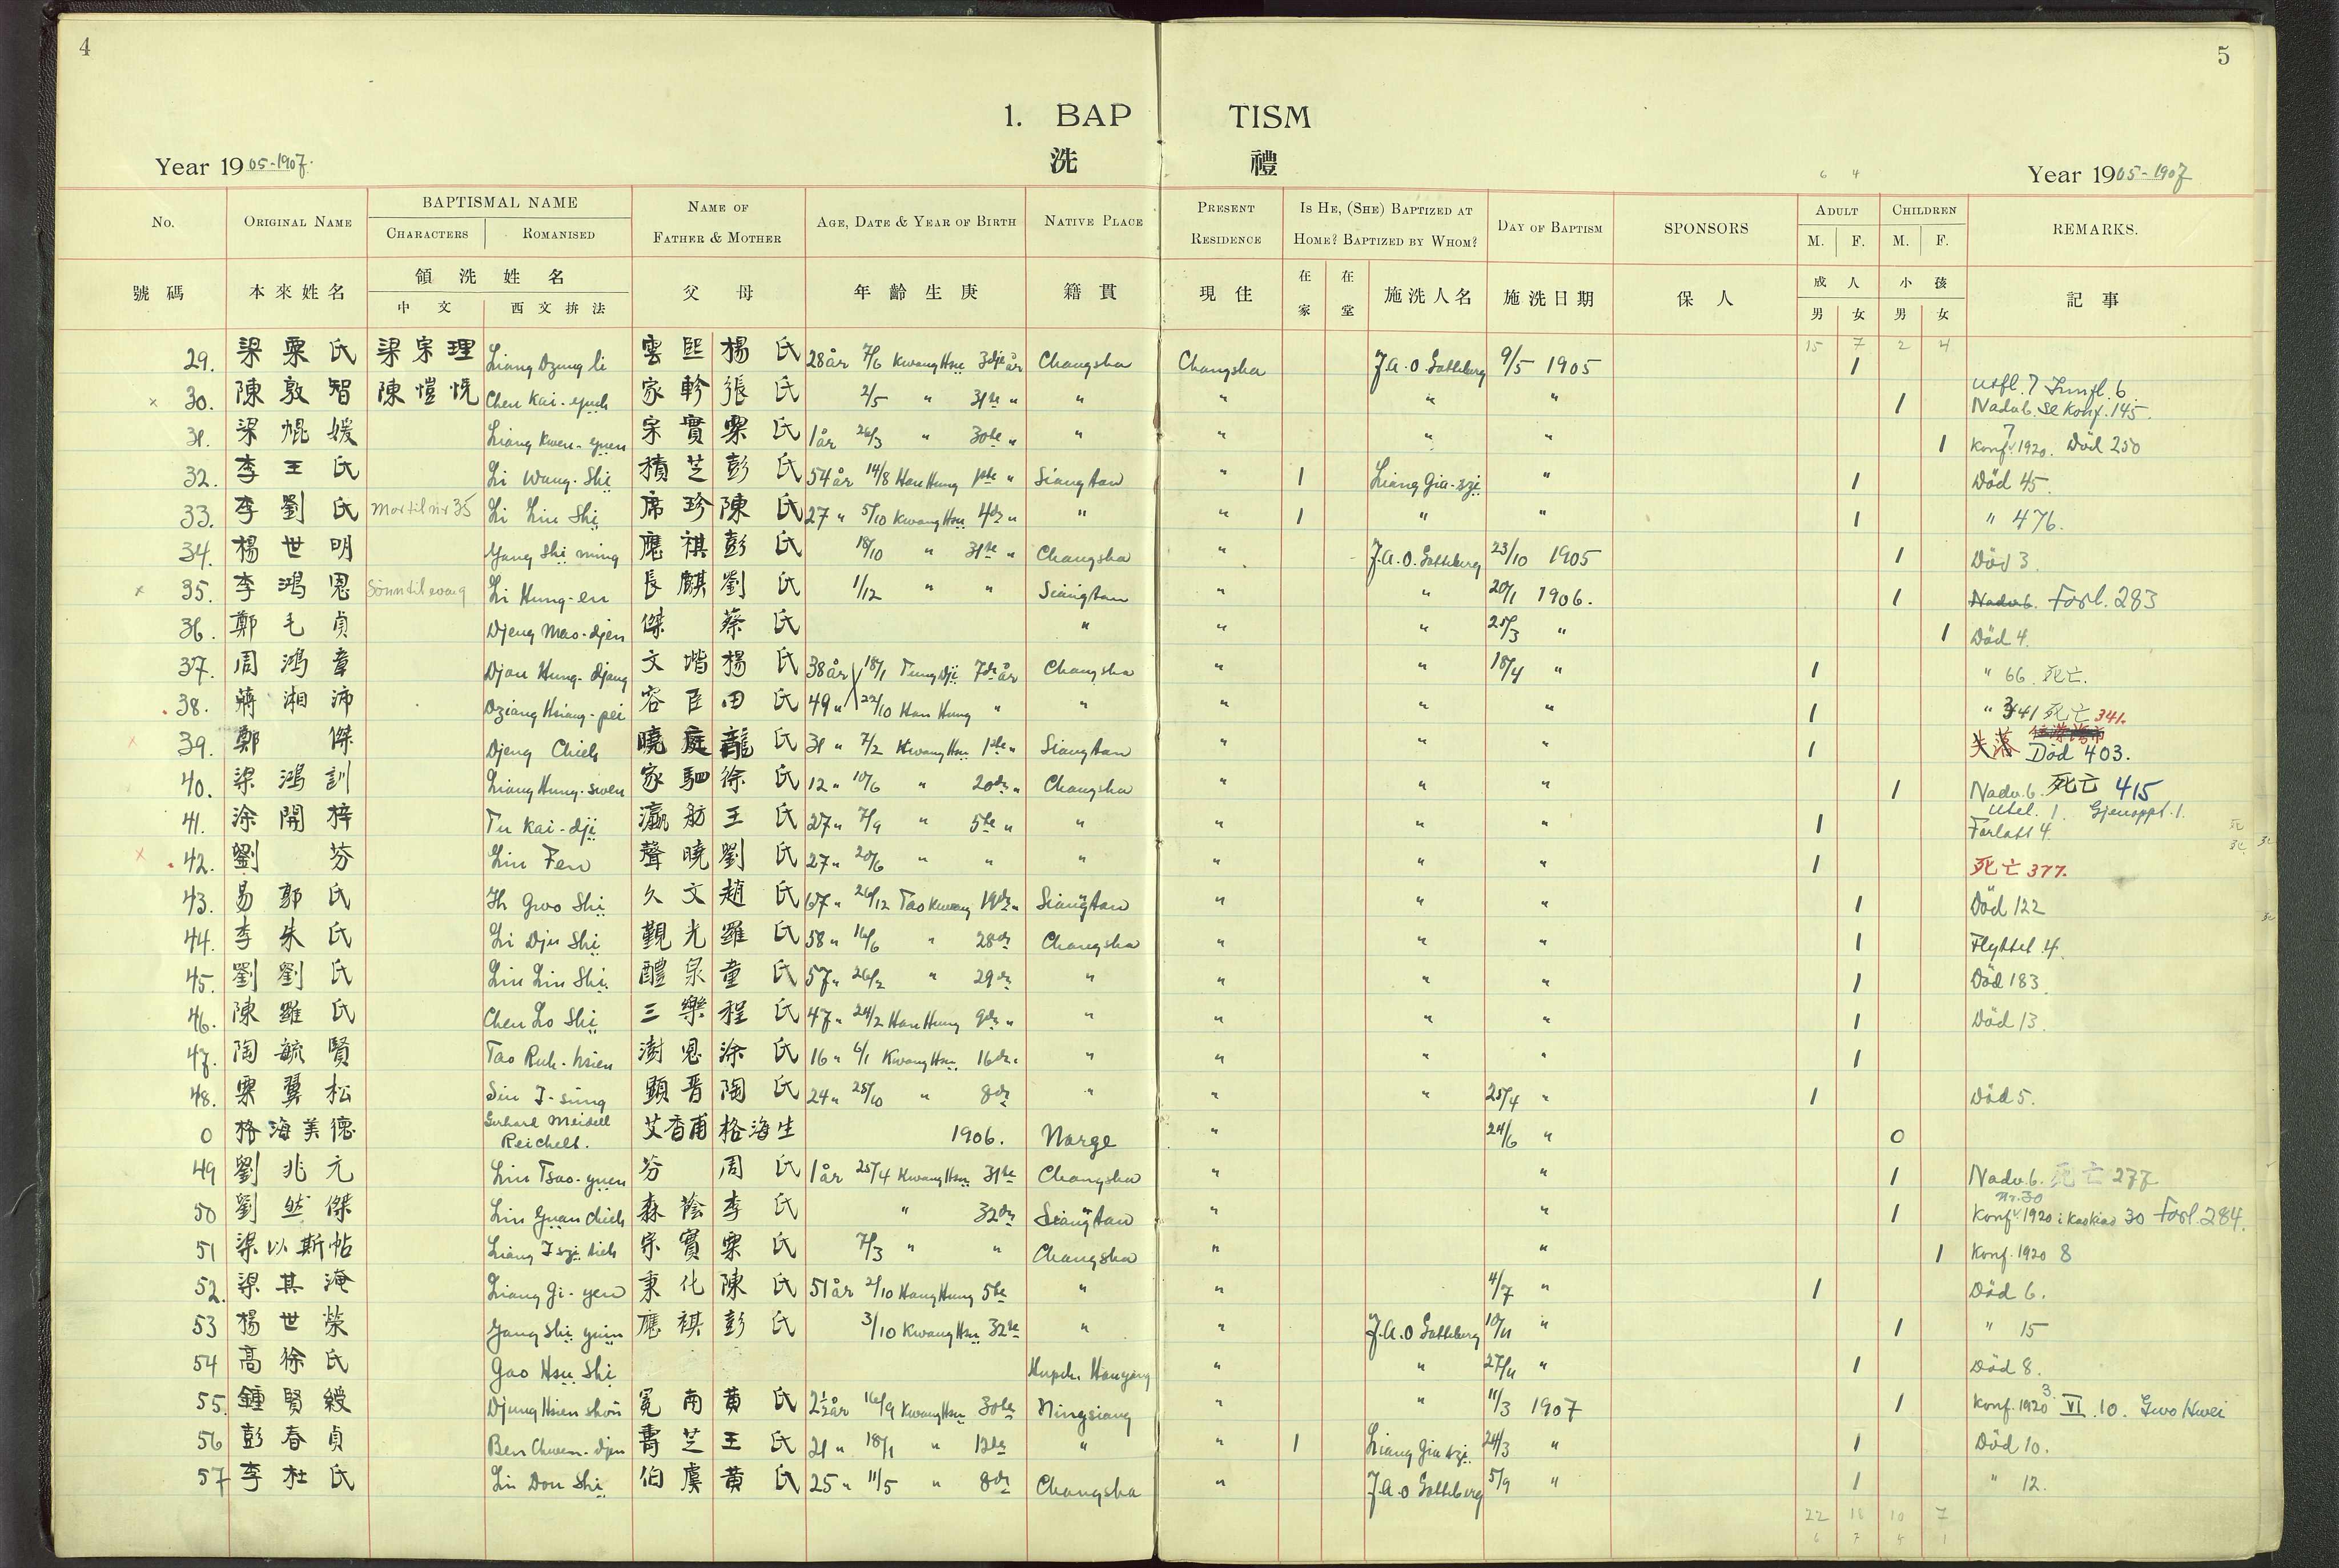 4
5
1. BAP TISM
洗 禮
Year 1905-1907.
Year 1905-1907
6 4
No. ORIGINAL NAME BAPTISMAL NAME NAME OF FATHER & MOTHER AGE, DATE & YEAR OF BIRTH NATIVE PLACE PRESENT RESIDENCE IS HE, (SHE) BAPTIZED AT HOME? BAPTIZED BY WHOM? DAY OF BAPTISM SPONSORS ADULT CHILDREN REMARKS.
CHARACTERS ROMANISED M. F. M. F.
號碼 本來姓名 領洗姓名 父母 年齡生庚 籍貫 現住 在家 在堂 施洗人名 施洗日期 保人 成人 小孩 記事
中文 西文拚法 男 女 男 女
15 7 2 4
29. 梁粟氏 梁宗理 Liang Dzung li 雲熙 楊氏 28 år 7/6 Kwang Hsü 3dje år Changsha Changsha J.A.O. Gotteberg 9/5 1905 1
30. 陳敦智 陳愷悦 Chen Kai-yueh 家軫 張氏 2/5 " 31te " " " " " 1 Utfl. 7 Innfl. 6 Nadv.b. se Konf. 145.
31. 梁焜媛 Liang Kwen-yuen 宗實 粟氏 1 år 26/3 " 30te " " " " " 1 Konf. 1920. 7 Död 250
32. 李王氏 Li Wang-Shi 積芝 彭氏 54 år 14/8 Han Hung 1ste " Siangtan " 1 Liang Gia-szi " 1 Död 45.
33. 李劉氏 Mor til nr 35 Li Liu Shi 席珍 陳氏 27 " 5/10 Kwang Hsü 4de " " " 1 " " 1 " 476.
34. 楊世明 Yang Shi ming 應祺 彭氏 18/10 " 31te " Changsha " J.A.O. Gotteberg 23/10 1905 1 Död 3.
35. 李鴻恩 Li Hung-en 長麒 劉氏 1/12 " " Siangtan " " 20/1 1906. 1 Nadv.b. Forl. 283
36. 鄭毛貞 Djeng Mao-djen 傑 蔡氏 " " " 25/3 " 1 Död 4.
37. 周鴻章 Djou Hung-djang 文堦 楊氏 38 år 18/1 Tung Dji 7de år Changsha " " 18/4 " 1 " 66. 死亡.
38. 蔣湘沛 Dziang Hsiang-pei 容臣 田氏 49 " 22/10 Han Hung " " " " " 1 " 341 死亡 341.
39. 鄭傑 Djeng Chieh 曉庭 龍氏 31 " 7/2 Kwang Hsü 1ste " Siangtan " " " 1 失落 Död 403.
40. 梁鴻訓 Liang Hung-swen 家駟 徐氏 12 " 10/6 " 20de " Changsha " " " 1 Nadv.b. 死亡 415
41. 涂開梓 Tu Kai-dji 瀛舫 王氏 27 " 7/9 " 5te " " " " " 1 Utel. 1. Gjenoppt. 1. Forlatt 4.
42. 劉芬 Liu Fen 聲曉 劉氏 27 " 20/6 " " " " " " 1 死亡 377.
43. 易郭氏 Ih Gwo Shi 久文 趙氏 67 " 26/12 Tao Kwang 19de " Siangtan " " " 1 Död 122
44. 李朱氏 Li Dju Shi 觀光 羅氏 58 " 16/6 " 28de Changsha " " " 1 Flyttet 4.
45. 劉劉氏 Liu Liu Shi 醴泉 童氏 57 " 26/2 " 29de " " " " 1 Död 183.
46. 陳羅氏 Chen Lo Shi 三樂 程氏 47 " 24/2 Han Hung 9de " " " " " 1 Död 13.
47. 陶毓賢 Tao Ruh-hsien 澍恩 涂氏 16 " 6/1 Kwang Hsü 16de " " " " " 1
48. 粟翼松 Siu I-sung 顯晋 陶氏 24 " 25/10 " 8de " " " 25/4 " 1 Död 5.
0 格海美德 Gerhard Meidell Reichelt. 艾香甫 格海生 1906. Norge " 24/6 " 0
49 劉兆元 Liu Tsao-yuen 芬 周氏 1 år 25/4 Kwang Hsü 31te Changsha " " 1 Nadv.b. 死亡 277
50 劉然傑 森蔭 李氏 " 32de Siangtan " " 1 Nr. 30 Konf. 1920 i Kaokiao 30 Forl. 284.
51 梁以斯帖 Liang I szi tieh 宗實 粟氏 7/3 " " Changsha " " 1 Konf. 1920 8
52. 梁其淹 Liang Gi-yen 秉化 陳氏 51 år 2/10 Hang Hung 5te " " 4/7 " 1 Död 6.
53 楊世榮 Yang Shi yuin 應祺 彭氏 3/10 Kwang Hsü 32te " " J.A.O Gotteberg 10/11 " 1 " 15
54 高徐氏 Gao Hsü Shi Hupeh. Hanyang " " 27/11 " 1 Död 8.
55. 鍾賢綬 Djung Hsien shou 冕南 黃氏 2½ år 16/9 Kwang Hsü 30te Ningsiang " " 11/3 1907 1 Konf. 1920 3. VI. 10. Gwo Hwei
56 彭春貞 Ben Chwen-djen 芝 王氏 21 " 18/1 " 12te " " 1 Liang Gia szi. 24/3 " 1 Död 10.
57 李杜氏 Li Dou Shi 伯虞 黃氏 25 " 11/5 " 8de Changsha " J.A.O Gotteberg 5/9 " 1 " 12.
22 18 10 7
6 7 5 1